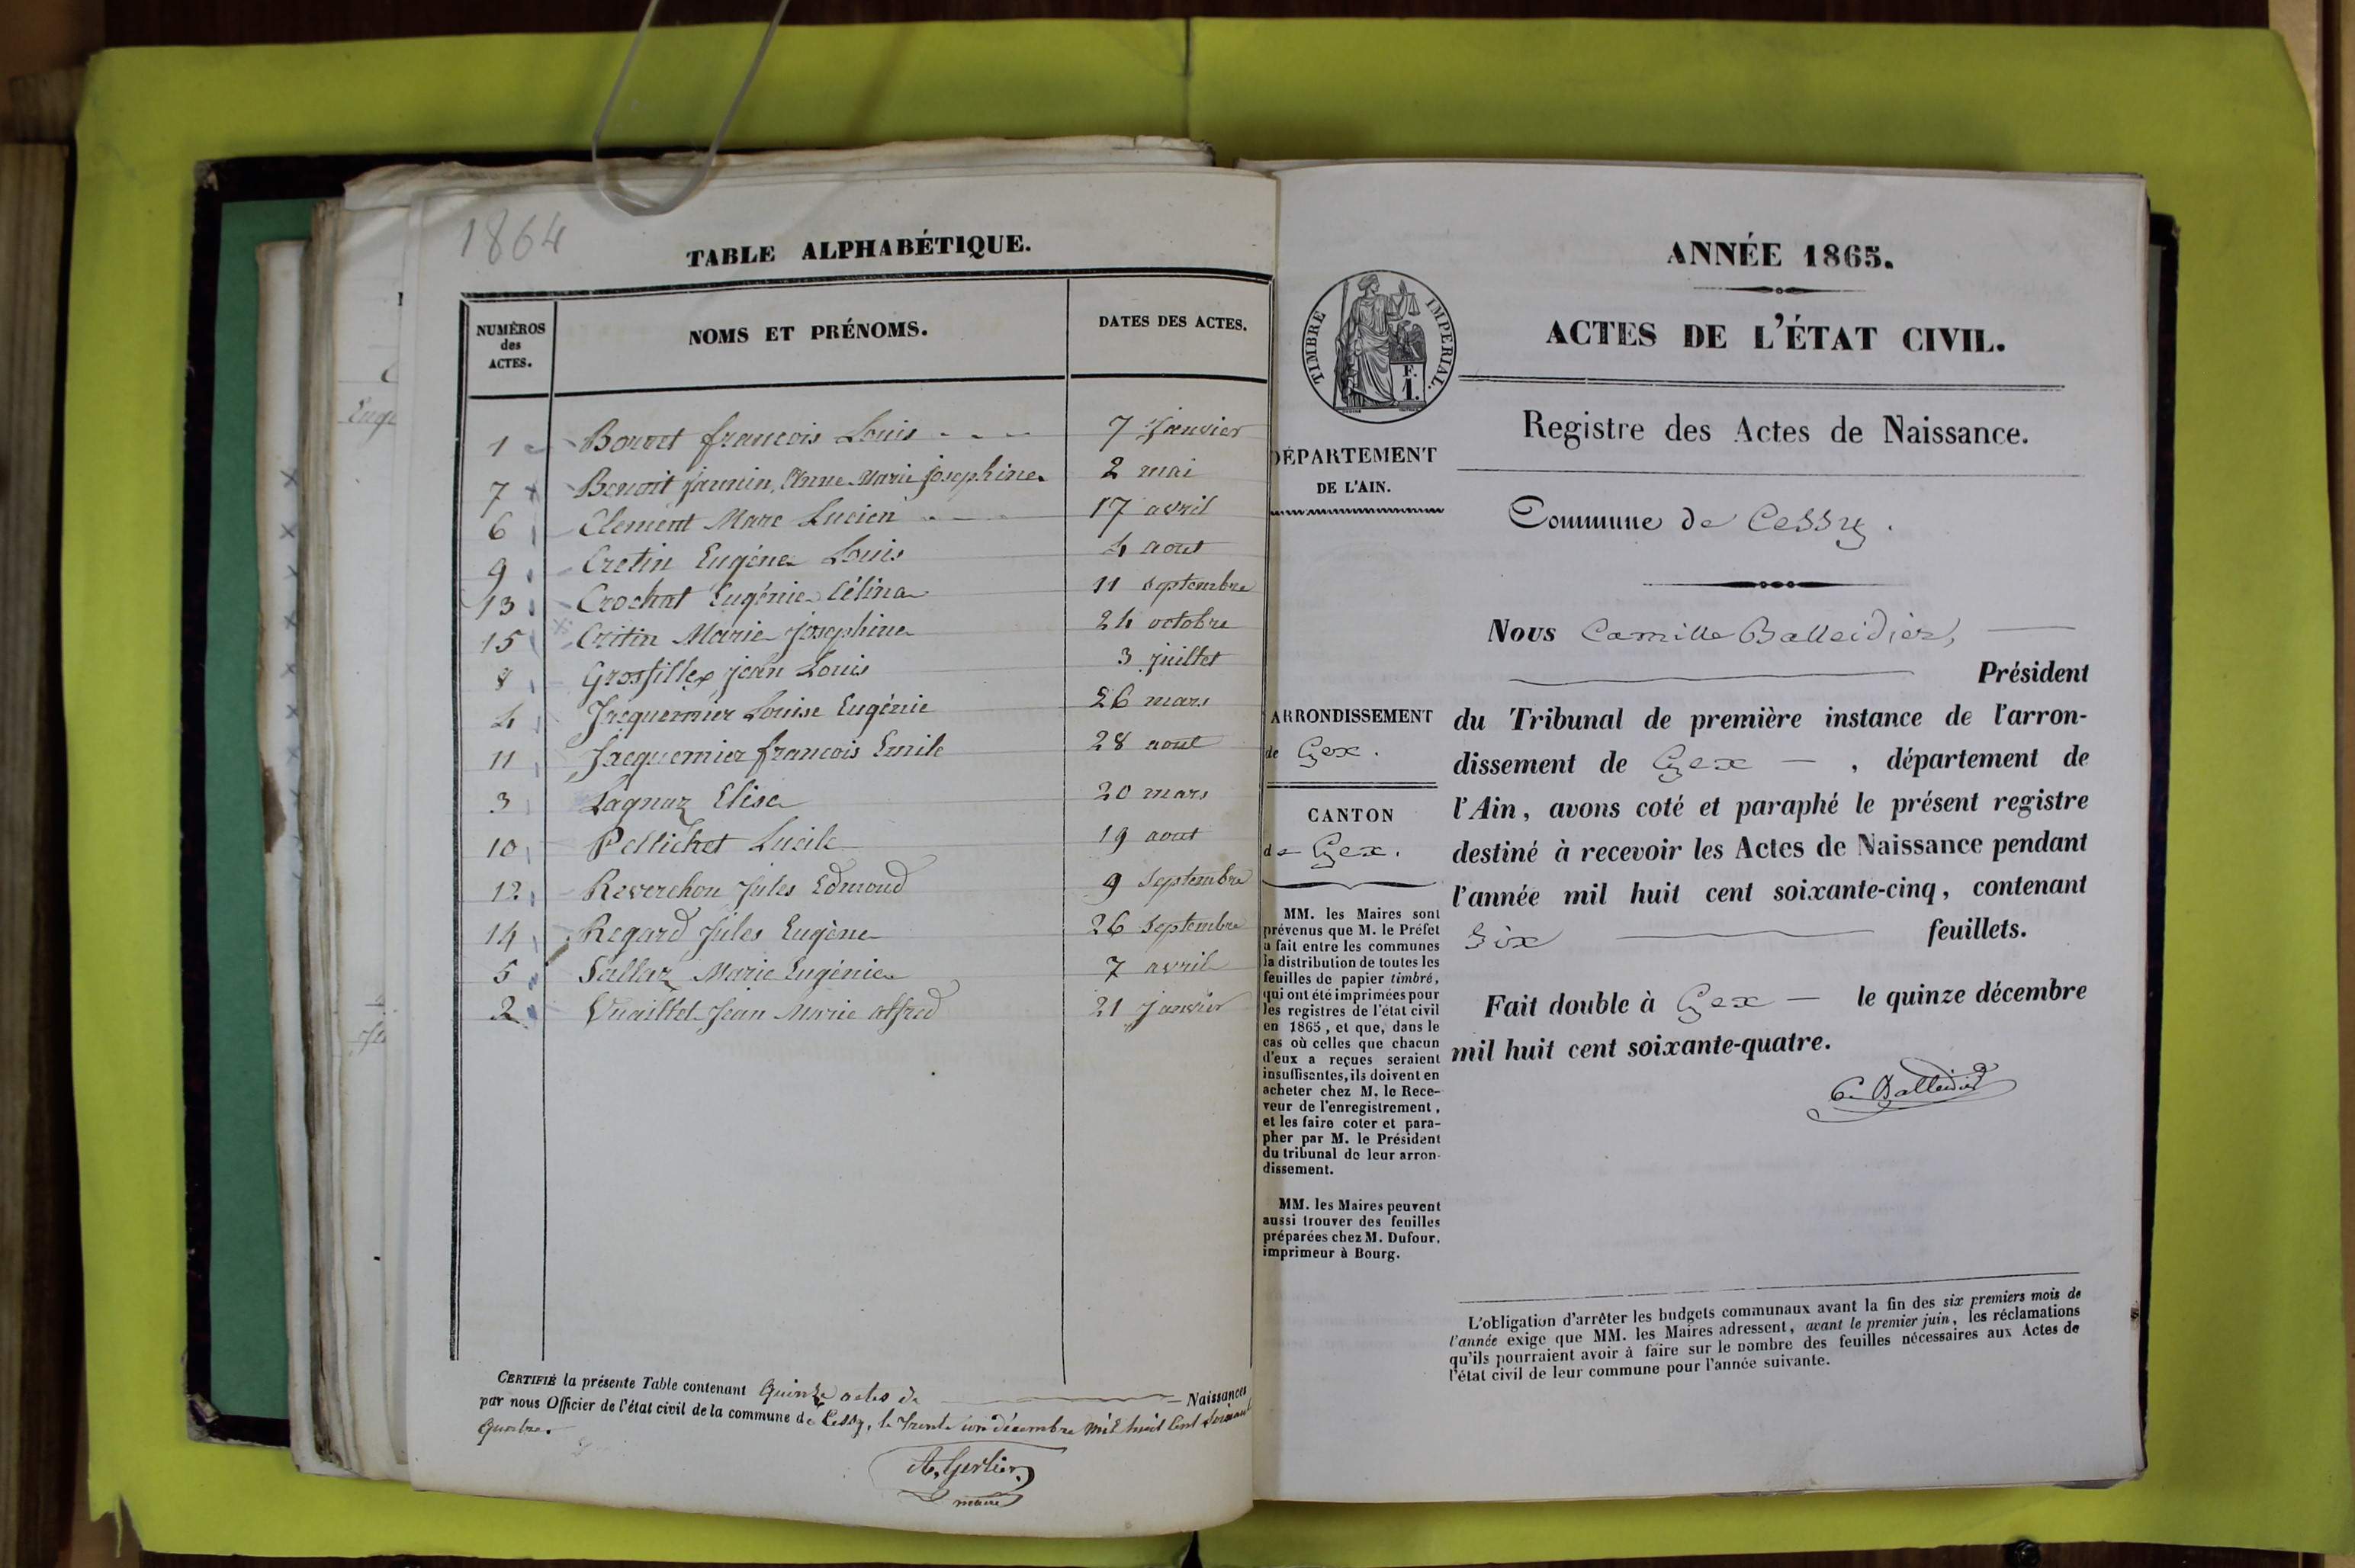 1864
TABLE ALPHABÉTIQUE.
NUMÉROS des ACTES. NOMS ET PRÉNOMS. DATES DES ACTES.
1 Bouvet francois Louis 7 Janvier
7 Benoit jannin, Anne Marie josephine 2 mai
6 Clement Marc Lucien 17 avril
9 Cretin Eugène Louis 4 aout
13 Crochat Eugénie Célina 11 Septembre
15 Critin Marie Josephine 24 octobre
8 Grosfillex jean Louis 3 juillet
4 Jacquemier Louise Eugénie 26 mars
11 Jacquemier francois Emile 28 aout
3 Lagnaz Elisa 20 mars
10 Pellichet Lucile 19 aout
12 Reverchon Jules Edmond 9 Septembre
14 Regard Jules Eugène 26 Septembre
5 Sallaz Marie Eugénie 7 avril
2 Vuaillet Jean Marie alfred 21 Janvier
CERTIFIÉ la présente Table contenant Quinze actes de Naissances
par nous Officier de l'état civil de la commune de Cessy, le trente un décembre mil huit cent soixante
quatre.
maire
ANNÉE 1865.
ACTES DE L'ÉTAT CIVIL.
TIMBRE IMPERIAL.
F.
1.
Registre des Actes de Naissance.
DÉPARTEMENT
DE L'AIN.
Commune de Cessy.
Nous Camille Balleidier,
Président
ARRONDISSEMENT
de Gex.
CANTON
de Gex.
du Tribunal de première instance de l'arron-
dissement de Gex, département de
l'Ain, avons coté et paraphé le présent registre
destiné à recevoir les Actes de Naissance pendant
l'année mil huit cent soixante-cinq, contenant
Six feuillets.
Fait double à Gex le quinze décembre
mil huit cent soixante-quatre.
C. Balleidier
MM. les Maires sont
prévenus que M. le Préfet
a fait entre les communes
la distribution de toutes les
feuilles de papier timbré,
qui ont été imprimées pour
les registres de l'état civil
en 1865, et que, dans le
cas où celles que chacun
d'eux a reçues seraient
insuffisantes, ils doivent en
acheter chez M. le Rece-
veur de l'enregistrement,
et les faire coter et para-
pher par M. le Président
du tribunal de leur arron-
dissement.
MM. les Maires peuvent
aussi trouver des feuilles
préparées chez M. Dufour,
imprimeur à Bourg.
L'obligation d'arrêter les budgets communaux avant la fin des six premiers mois de
l'année exige que MM. les Maires adressent, avant le premier juin, les réclamations
qu'ils pourraient avoir à faire sur le nombre des feuilles nécessaires aux Actes de
l'état civil de leur commune pour l'année suivante.